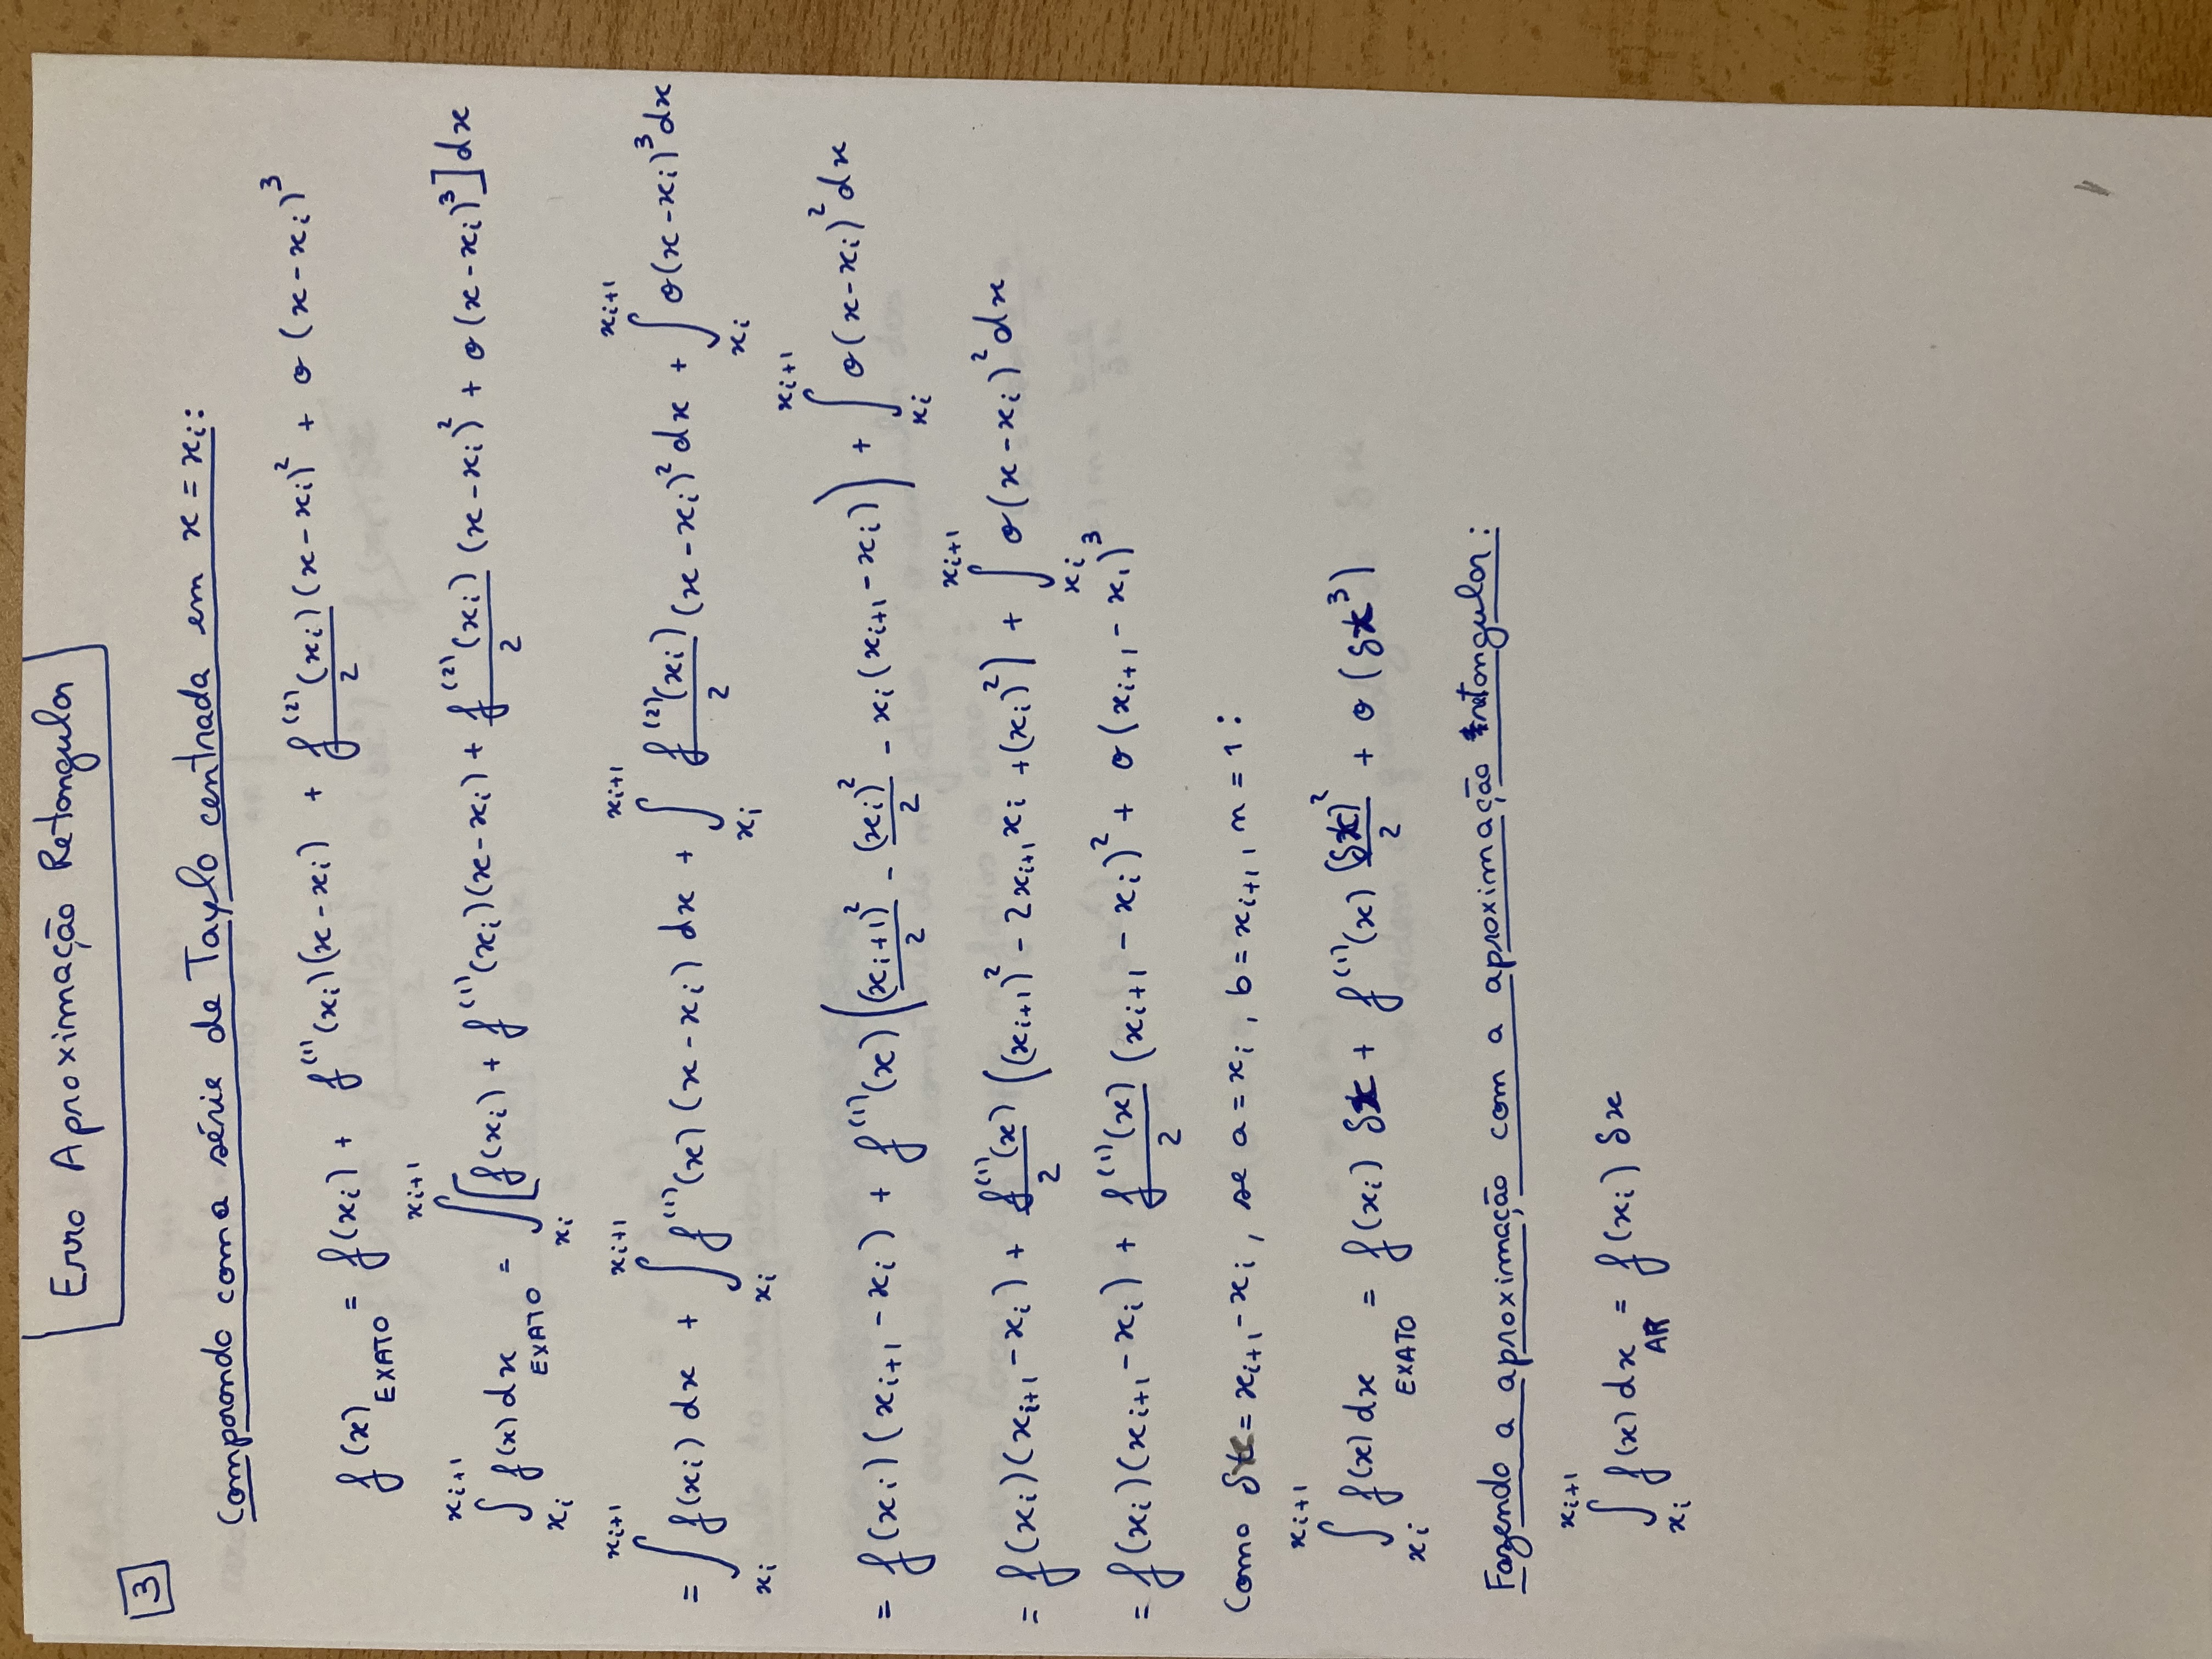 Erro Aproximação Retangular
3
Comparando com a série de Taylo centrada em x = xᵢ:
f(x) EXATO = f(xᵢ) + f⁽¹⁾(xᵢ)(x - xᵢ) + f⁽²⁾(xᵢ)/2 (x - xᵢ)² + o (x - xᵢ)³
∫_{xᵢ}^{xᵢ₊₁} f(x) dx EXATO = ∫_{xᵢ}^{xᵢ₊₁} [f(xᵢ) + f⁽¹⁾(xᵢ)(x - xᵢ) + f⁽²⁾(xᵢ)/2 (x - xᵢ)² + o(x - xᵢ)³] dx
= ∫_{xᵢ}^{xᵢ₊₁} f(xᵢ) dx + ∫_{xᵢ}^{xᵢ₊₁} f⁽¹⁾(x) (x - xᵢ) dx + ∫_{xᵢ}^{xᵢ₊₁} f⁽²⁾(xᵢ)/2 (x - xᵢ)² dx + ∫_{xᵢ}^{xᵢ₊₁} o(x - xᵢ)³ dx
= f(xᵢ)(xᵢ₊₁ - xᵢ) + f⁽¹⁾(x) ((xᵢ₊₁)²/2 - (xᵢ)²/2 - xᵢ(xᵢ₊₁ - xᵢ)) + ∫_{xᵢ}^{xᵢ₊₁} o(x - xᵢ)² dx
= f(xᵢ)(xᵢ₊₁ - xᵢ) + f⁽¹⁾(x)/2 ((xᵢ₊₁)² - 2xᵢ₊₁xᵢ + (xᵢ)²) + ∫_{xᵢ}^{xᵢ₊₁} o(x - xᵢ)² dx
= f(xᵢ)(xᵢ₊₁ - xᵢ) + f⁽¹⁾(x)/2 (xᵢ₊₁ - xᵢ)² + o(xᵢ₊₁ - xᵢ)³
Como δx = xᵢ₊₁ - xᵢ, se a = xᵢ, b = xᵢ₊₁, n = 1:
∫_{xᵢ}^{xᵢ₊₁} f(x) dx EXATO = f(xᵢ) δx + f⁽¹⁾(x) (δx)²/2 + o(δx³)
Fazendo a aproximação com a aproximação retangular:
∫_{xᵢ}^{xᵢ₊₁} f(x) dx AR = f(xᵢ) δx